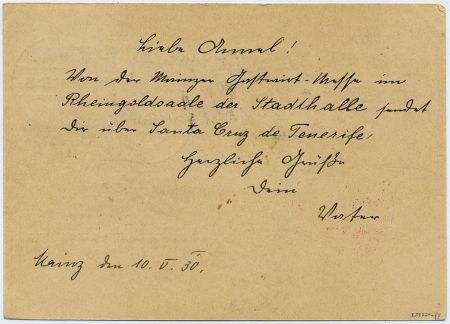 Liebe Annel!
Von der Mainzer Gastwirt-Messe im
Rheingoldsaale der Stadthalle sendet
Dir über Santa Cruz de Tenerife,
Herzliche Grüße
Dein
Vater
Mainz den 10. V. 30.